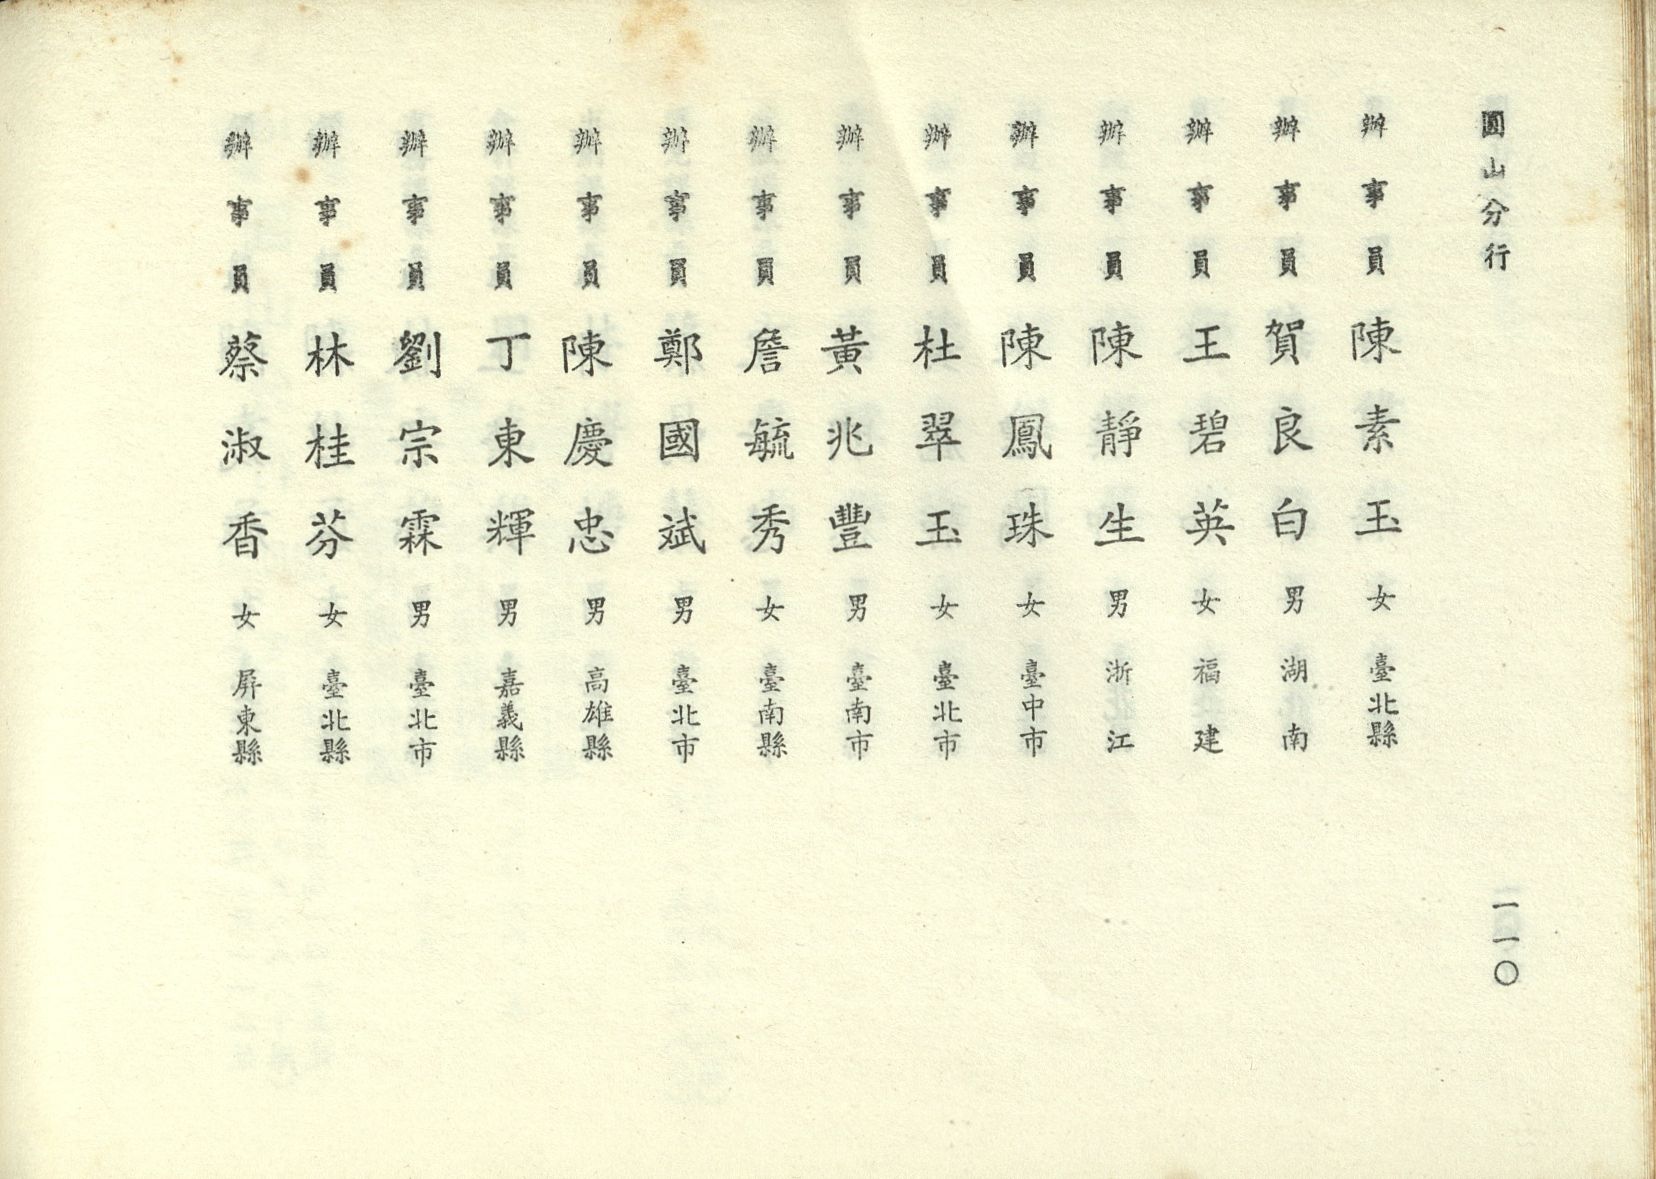 圓山分行
一一〇
辦事員 陳素玉 女 臺北縣
辦事員 賀良白 男 湖南
辦事員 王碧英 女 福建
辦事員 陳靜生 男 浙江
辦事員 陳鳳珠 女 臺中市
辦事員 杜翠玉 女 臺北市
辦事員 黃兆豐 男 臺南市
辦事員 詹毓秀 女 臺南縣
辦事員 鄭國斌 男 臺北市
辦事員 陳慶忠 男 高雄縣
辦事員 丁東輝 男 嘉義縣
辦事員 劉宗霖 男 臺北市
辦事員 林桂芬 女 臺北縣
辦事員 蔡淑香 女 屏東縣